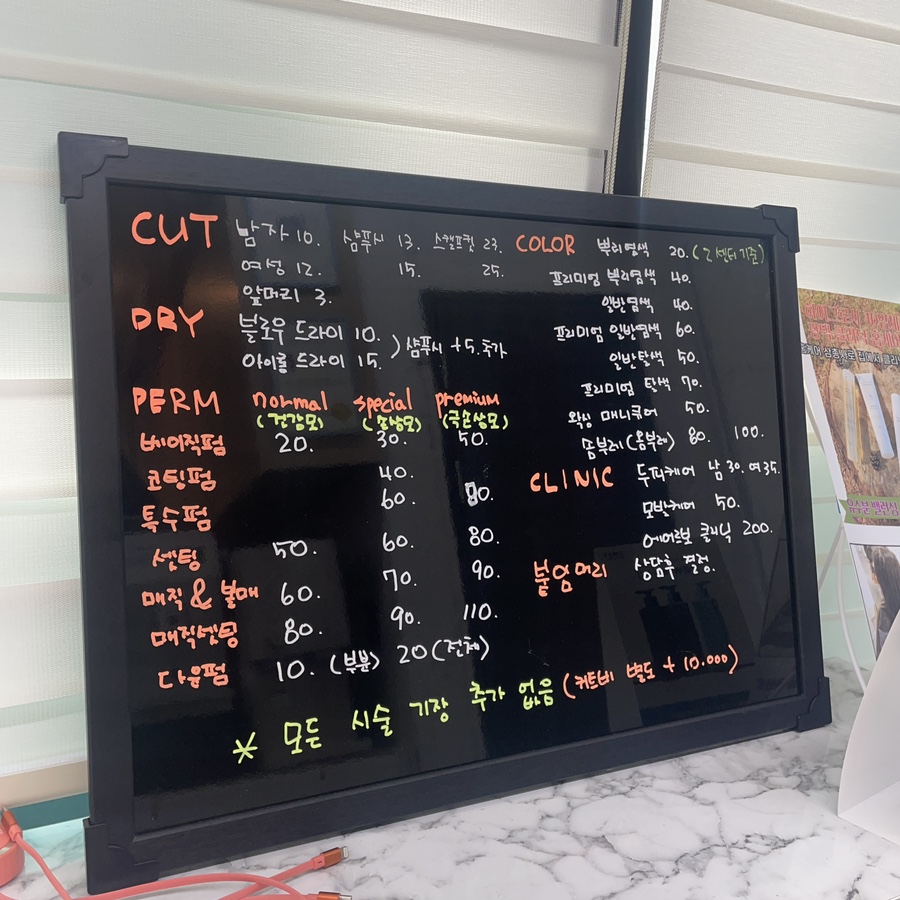 CUT 남자 10. 샴푸시 13. 스캘프컷 23.
여성 12. 15. 25.
앞머리 3.
DRY 블로우 드라이 10.
아이롱 드라이 15. ) 샴푸시 +5.추가
PERM normal special premium
(건강모) (손상모) (극손상모)
베이직펌 20. 30. 50.
코팅펌 40.
특수펌 60. 80.
셋팅 50. 60. 80.
매직 & 볼매 60. 70. 90.
매직셋팅 80. 90. 110.
다운펌 10. (부분) 20 (전체)
COLOR 뿌리염색 20. (2센터기준)
프리미엄 뿌리염색 40.
일반염색 40.
프리미엄 일반염색 60.
일반탈색 50.
프리미엄 탈색 70.
왁싱 매니큐어 50.
솜브레(옴부레) 80. 100.
CLINIC 두피케어 남 30. 여 35.
모발케어 50.
에어르봇 클리닉 200.
붙임머리 상담후 결정.
* 모든 시술 기장 추가 없음 (커트비 별도 + 10.000)